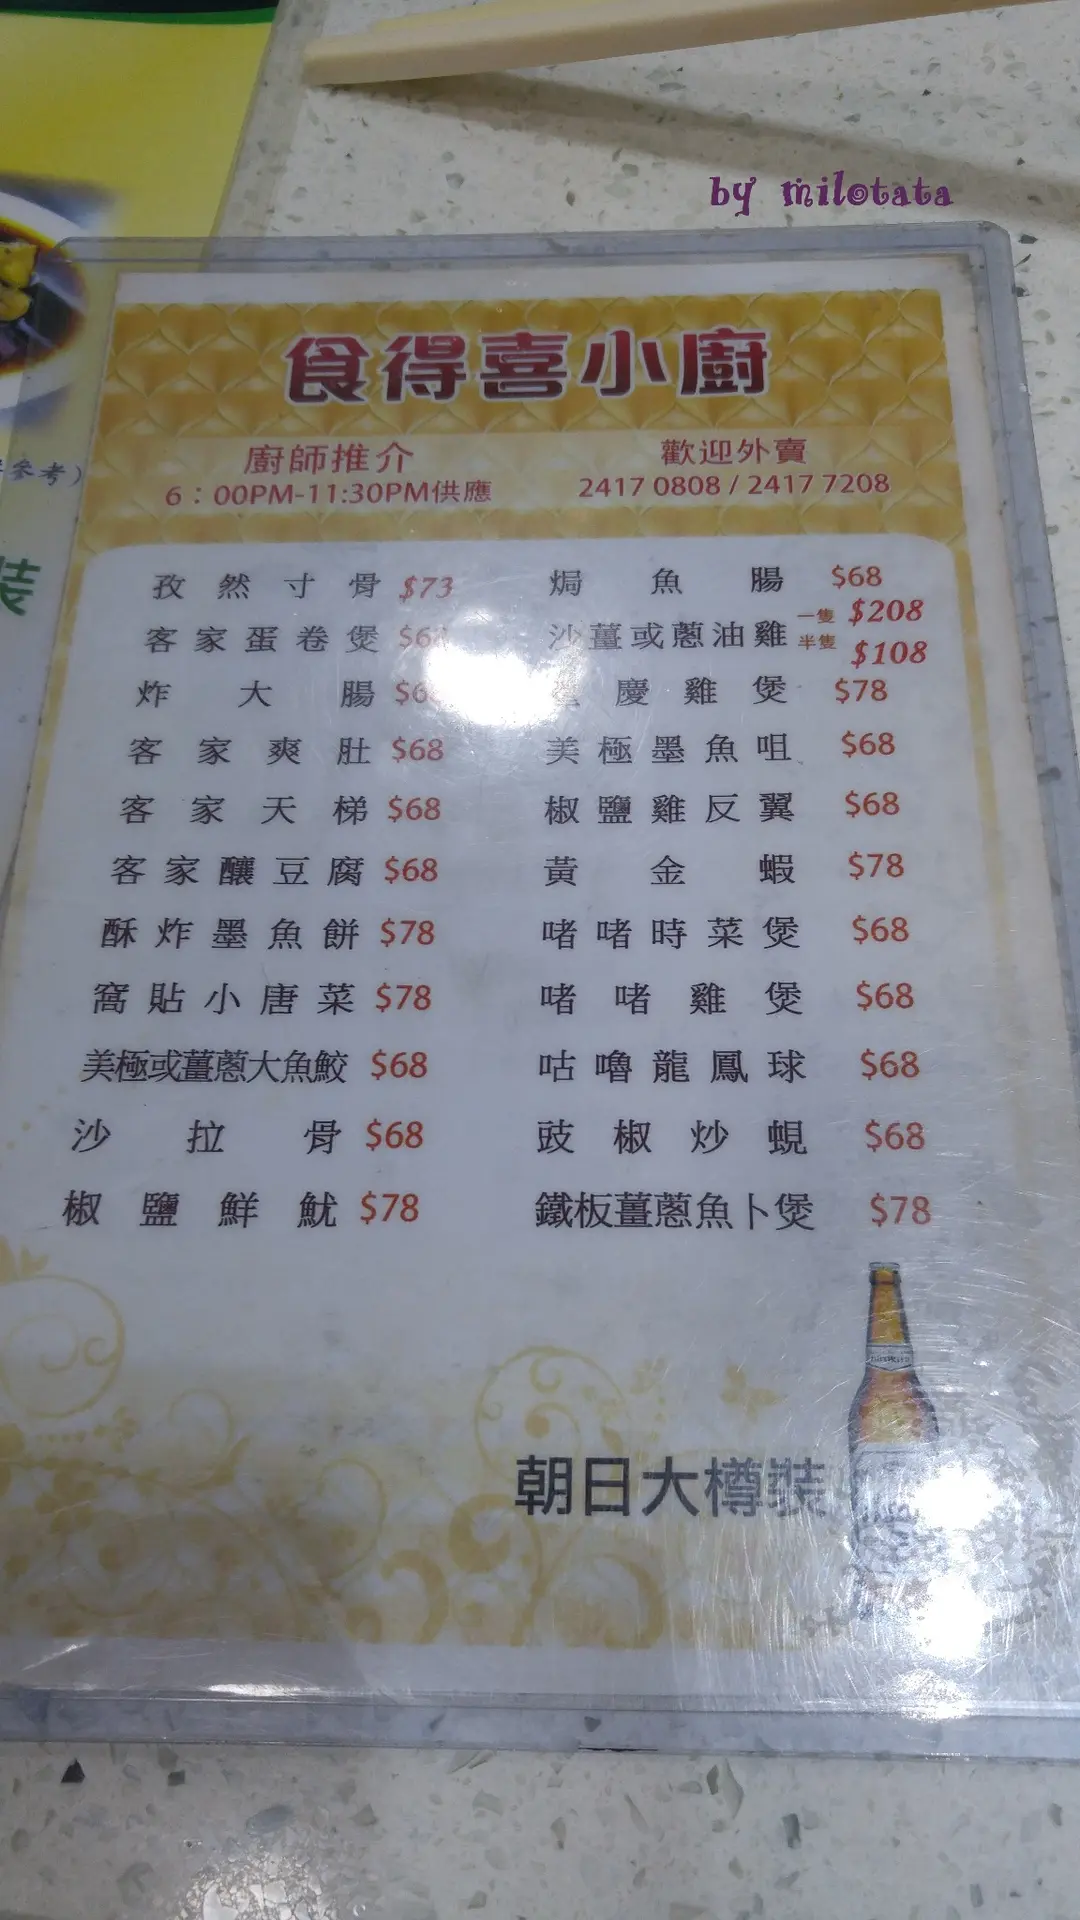 by milotata
參考)
裝
食得喜小廚
廚師推介
6：00PM-11:30PM供應
歡迎外賣
2417 0808 / 2417 7208
孜然寸骨 $73
客家蛋卷煲
炸大腸
客家爽肚 $68
客家天梯 $68
客家釀豆腐 $68
酥炸墨魚餅 $78
窩貼小唐菜 $78
美極或薑蔥大魚鮫 $68
沙拉骨 $68
椒鹽鮮魷 $78
焗魚腸 $68
沙薑或蔥油雞 一隻 $208
半隻 $108
慶雞煲 $78
美極墨魚咀 $68
椒鹽雞反翼 $68
黃金蝦 $78
啫啫時菜煲 $68
啫啫雞煲 $68
咕嚕龍鳳球 $68
豉椒炒蜆 $68
鐵板薑蔥魚卜煲 $78
朝日大樽裝